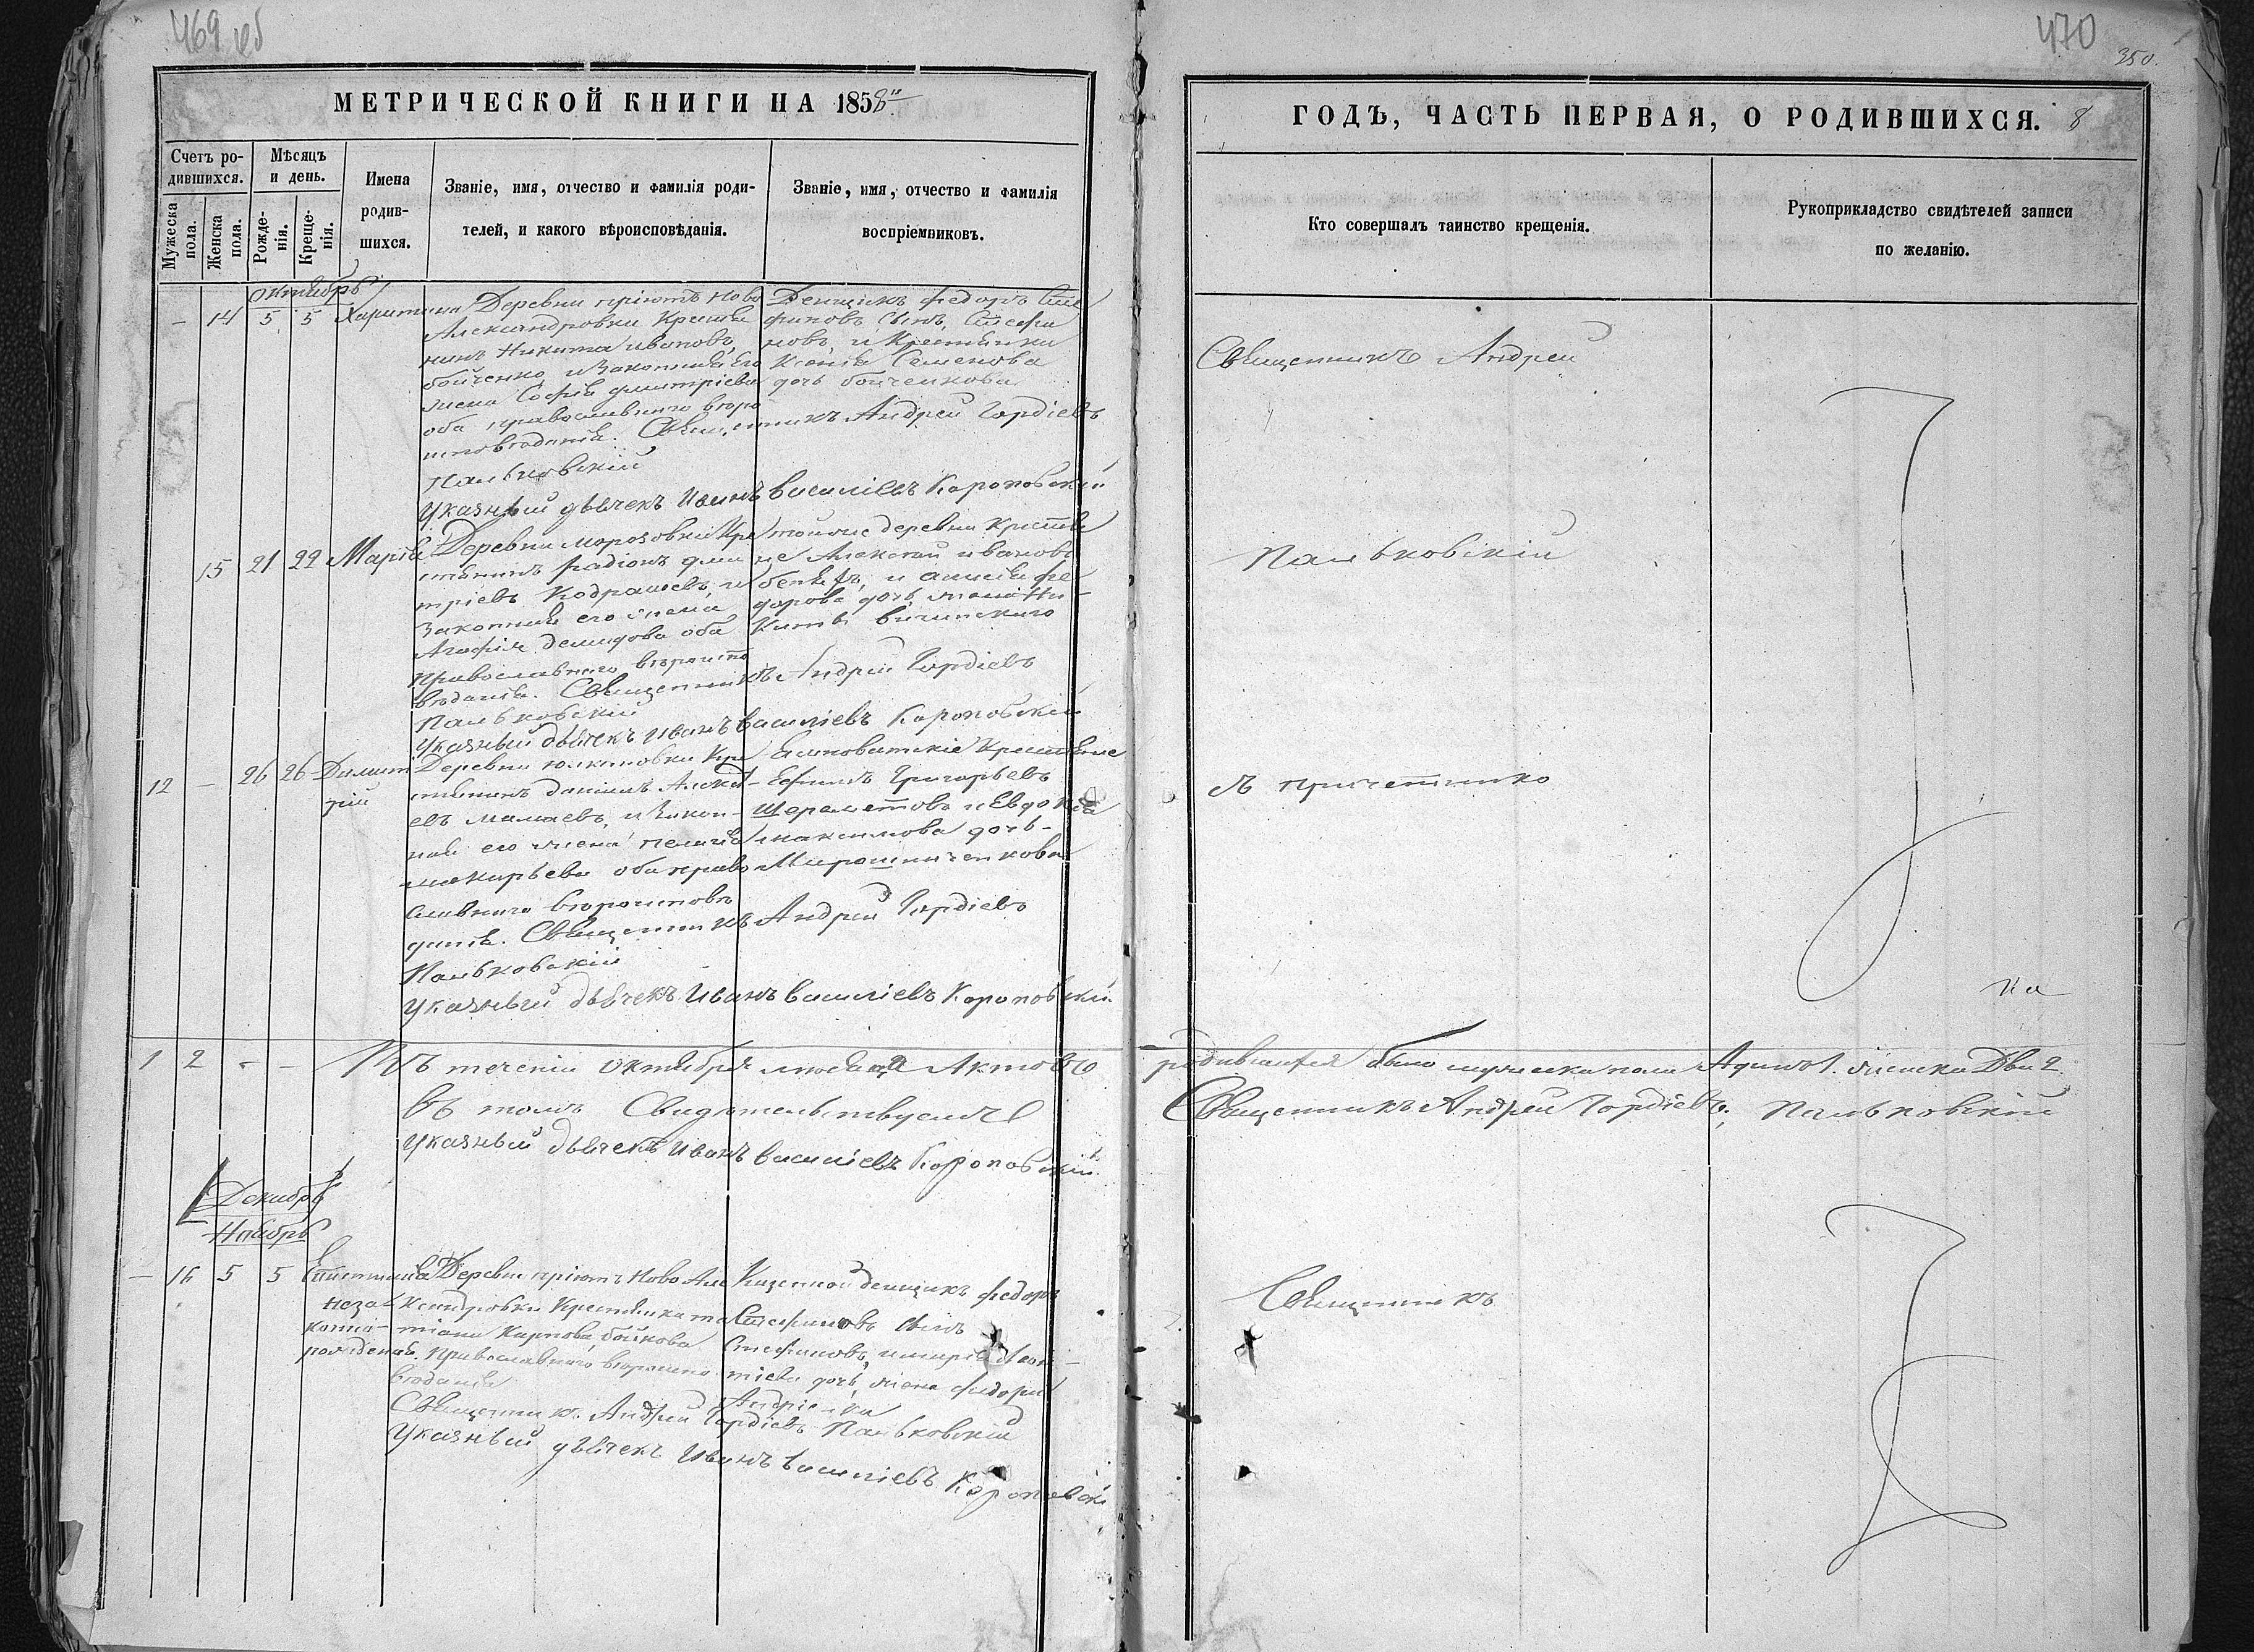 469
470
350.
МЕТРИЧЕСКОЙ КНИГИ НА 1858
ГОДЪ, ЧАСТЬ ПЕРВАЯ, О РОДИВШИХСЯ. 8
Счетъ родившихся.
Мужеска пола.
Женска пола.
Мѣсяцъ и день.
Рожденія.
Крещенія.
Имена родившихся.
Званіе, имя, отчество и фамилія родителей, и какого вѣроисповѣданія.
Званіе, имя, отчество и фамилія воспріемниковъ.
Кто совершалъ таинство крещенія.
Рукоприкладство свидѣтелей записи по желанію.
Октябрь
– 14 5 5 Харитина
Деревни пріютъ Ново
Александровки Крестья
нинъ Никита Ивановъ
бойченко, и Законная Его
жена Софія Дмитріева
оба православнаго вѣро
исповѣданія.
Денщикъ Федоръ Сте
фановъ сынъ, Стефа
новъ, и Крестьянка
Ксенія Семенова
дочь бойченкова
Священникъ Андрей Гордіевъ
Паньковскій
Указный дьячекъ Иванъ Василіевъ Короповскій
Священникъ Андрей
15 21 22 Марія
Деревни Морозовки Кре
стьянинъ Радіонъ Дми
тріевъ Кодрашевъ, и
Законная его жена
Агафія Демидова оба
Православнаго вѣроиспо
вѣданія.
тойже деревни Крестья
не Алексѣй Ивановъ
дорова дочь жена Ни-
киты
Священникъ Андрей Гордіевъ
Паньковскій
Указный дьячекъ Иванъ Василіевъ Короповскій
Паньковскій
12 – 26 26 Димит
рій
Деревни Кре
стьянинъ Даніилъ Алексѣ
евъ Мамаевъ, и Закон-
ная его жена Пелагія
Макарьева оба право
славнаго вѣроисповѣ
данія.
Крестьяне
Ефимъ Григорьевъ
Шереметовъ и Евдокія
Максимова дочь-
Мирошниченкова
Священникъ Андрей Гордіевъ
Паньковскій
Указный дьячекъ Иванъ Василіевъ Короповскій.
съ причетнико
1 2 - – Въ теченіи октября мѣсяца Актовъ
родившихся было мужеска пола Адинъ 1. женска Два 2.
въ томъ Свидѣтельствуемъ
Священникъ Андрей Гордіевъ Паньковскій
Указный дьячекъ Иванъ Василіевъ Короповскій.
Декабрь
Ноябрь
– 16 5 5
незаконно-
рожденная.
Деревни пріютъ Ново Але
ксандровки Крестьянка Та
тіана Карпова, бойкова
Православнаго вѣроиспо
вѣданія
Казенной денщикъ Федоръ
Стефановъ сынъ
Стефановъ, и Марія Леон-
тіева дочь, жена Федора
Священникъ Андрей Гордіевъ Паньковскій
Указный дьячекъ Иванъ Василіевъ Короповскій
Священникъ